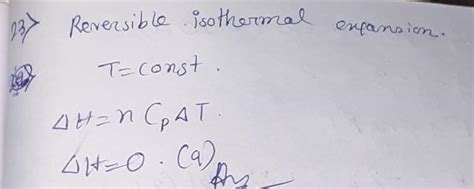 23> Reversible isothermal expansion.
T = const.
ΔH = n Cp ΔT.
ΔH = 0. (a) Ans